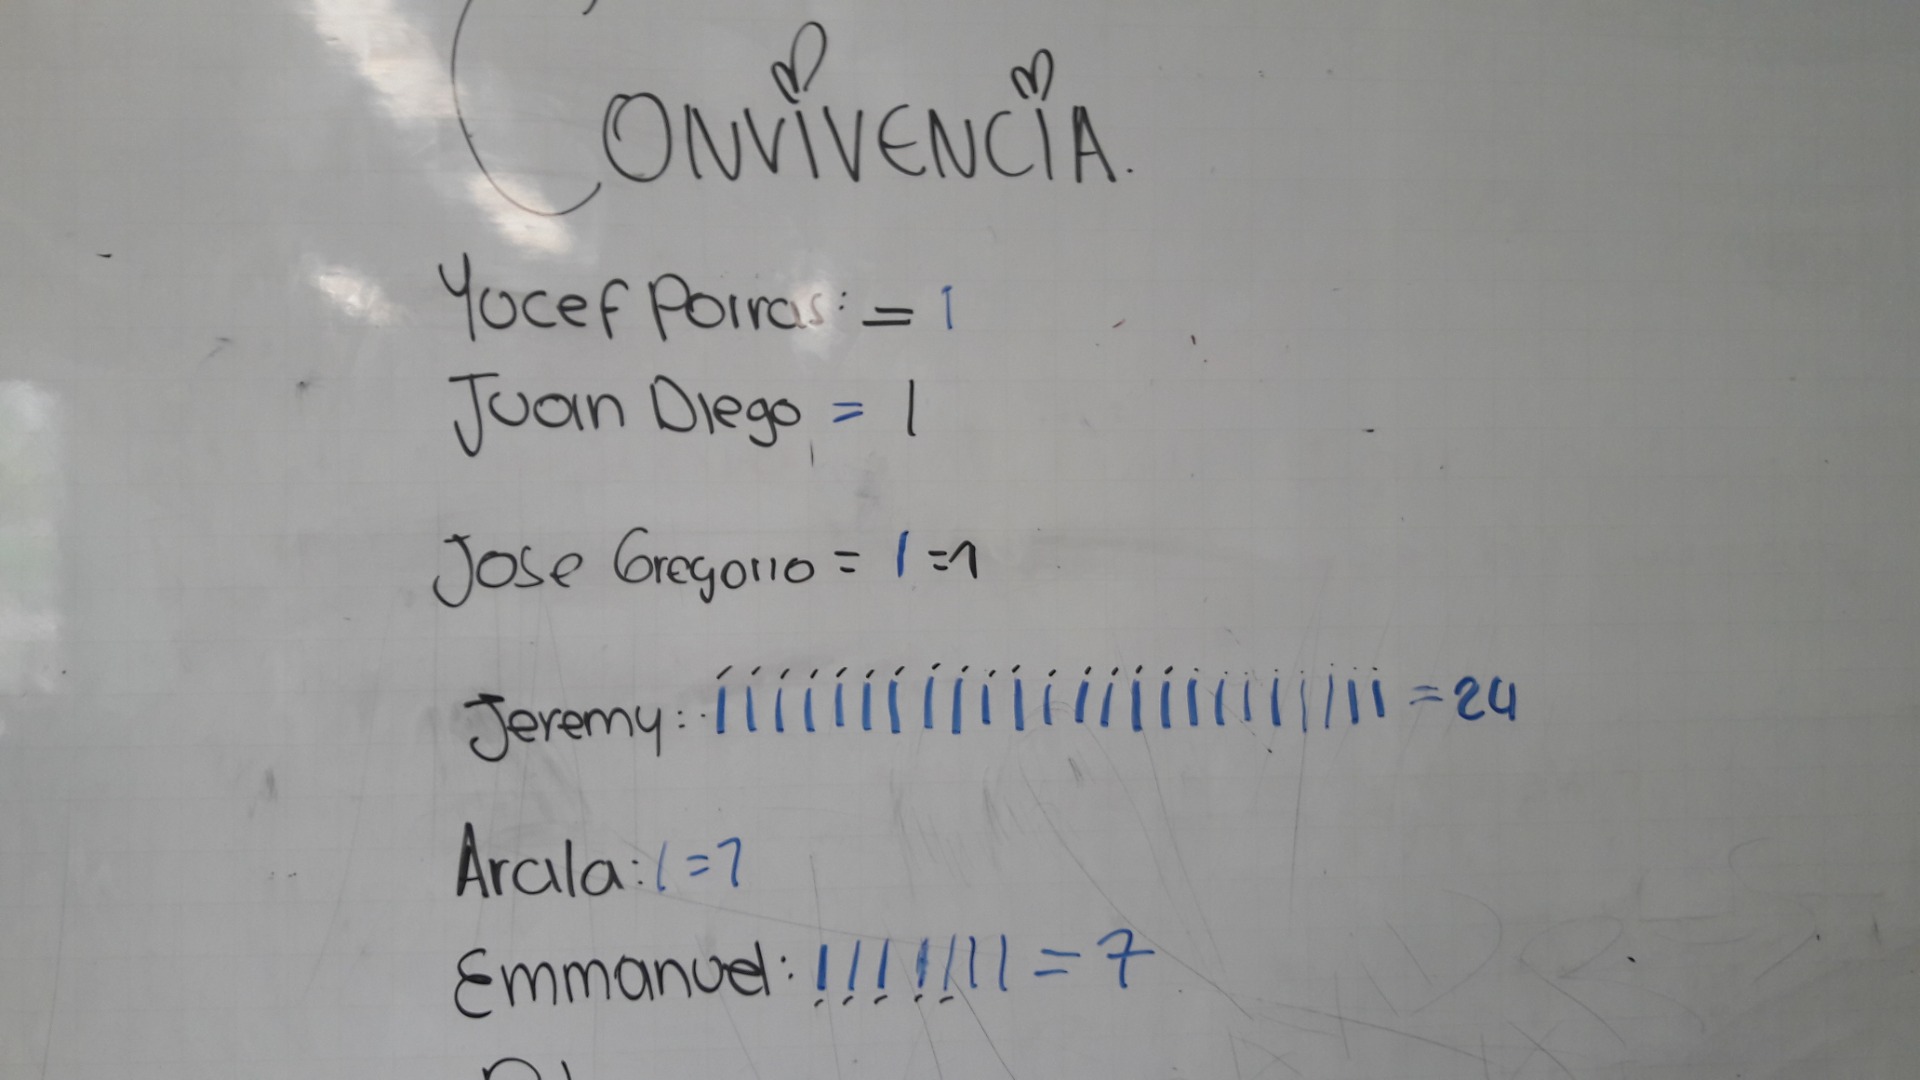 CONVIVENCIA.
Yocef Poiras: = 1
Juan Diego = |
Jose Gregorio = | =1
Jeremy: ||||||||||||||||||||||| =24
Arcila: | =1
Emmanuel: ||||||| = 7